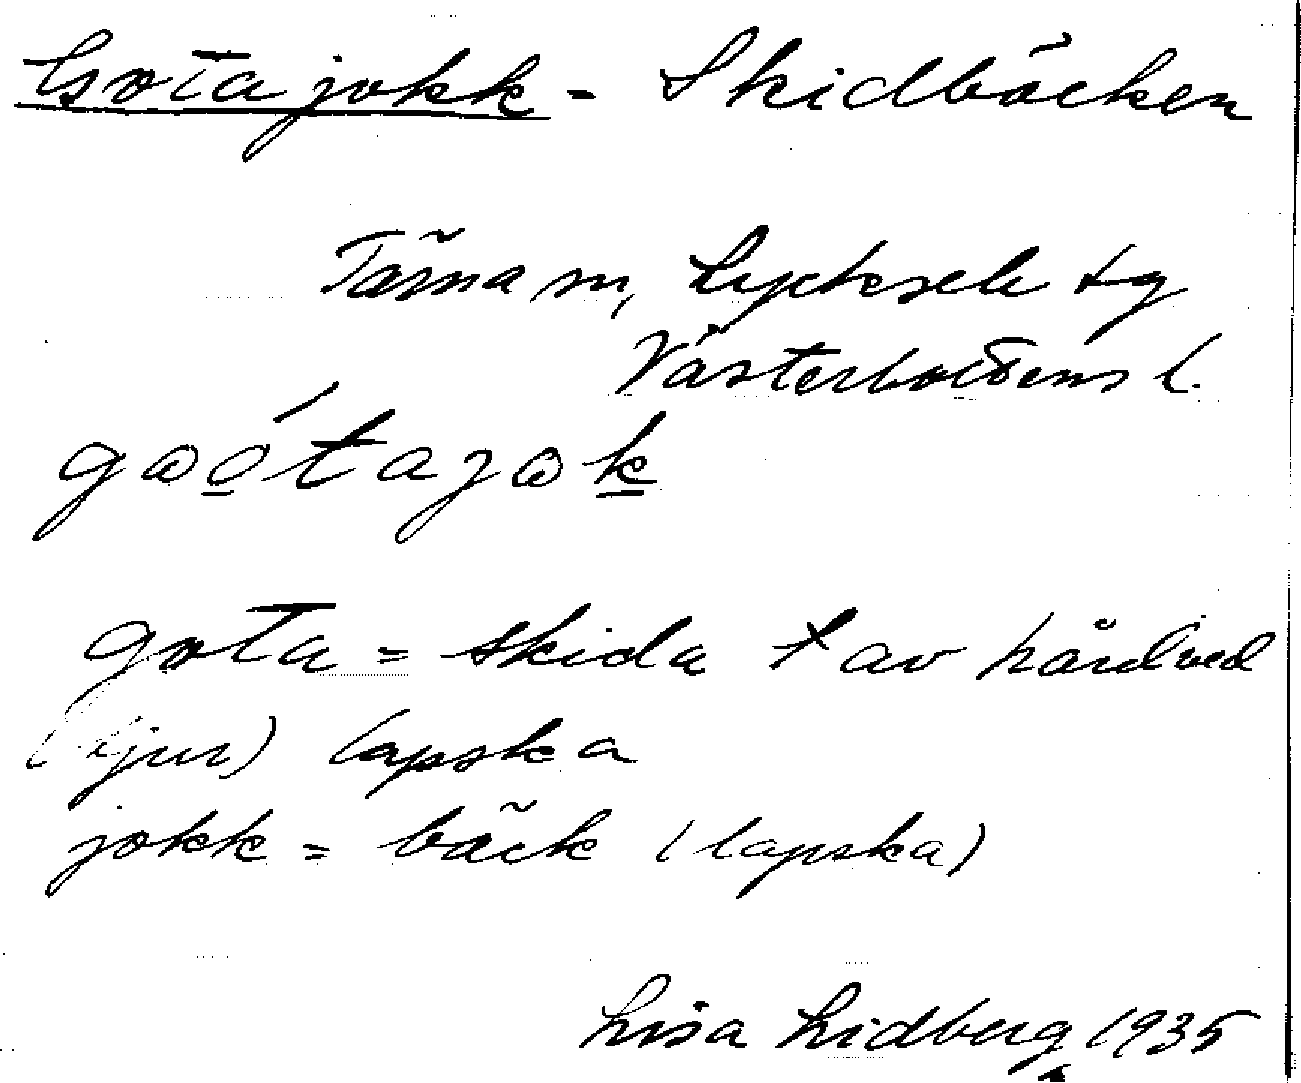 Gotajokk - Skidbäcken
Tärna sn, Lycksele tg
Västerbottens l.
gωo̲ ́tajωk̲
gota = skida t av hårdved
(tjur) lapska
jokk = bäck (lapska)
Lisa Lidberg 1935